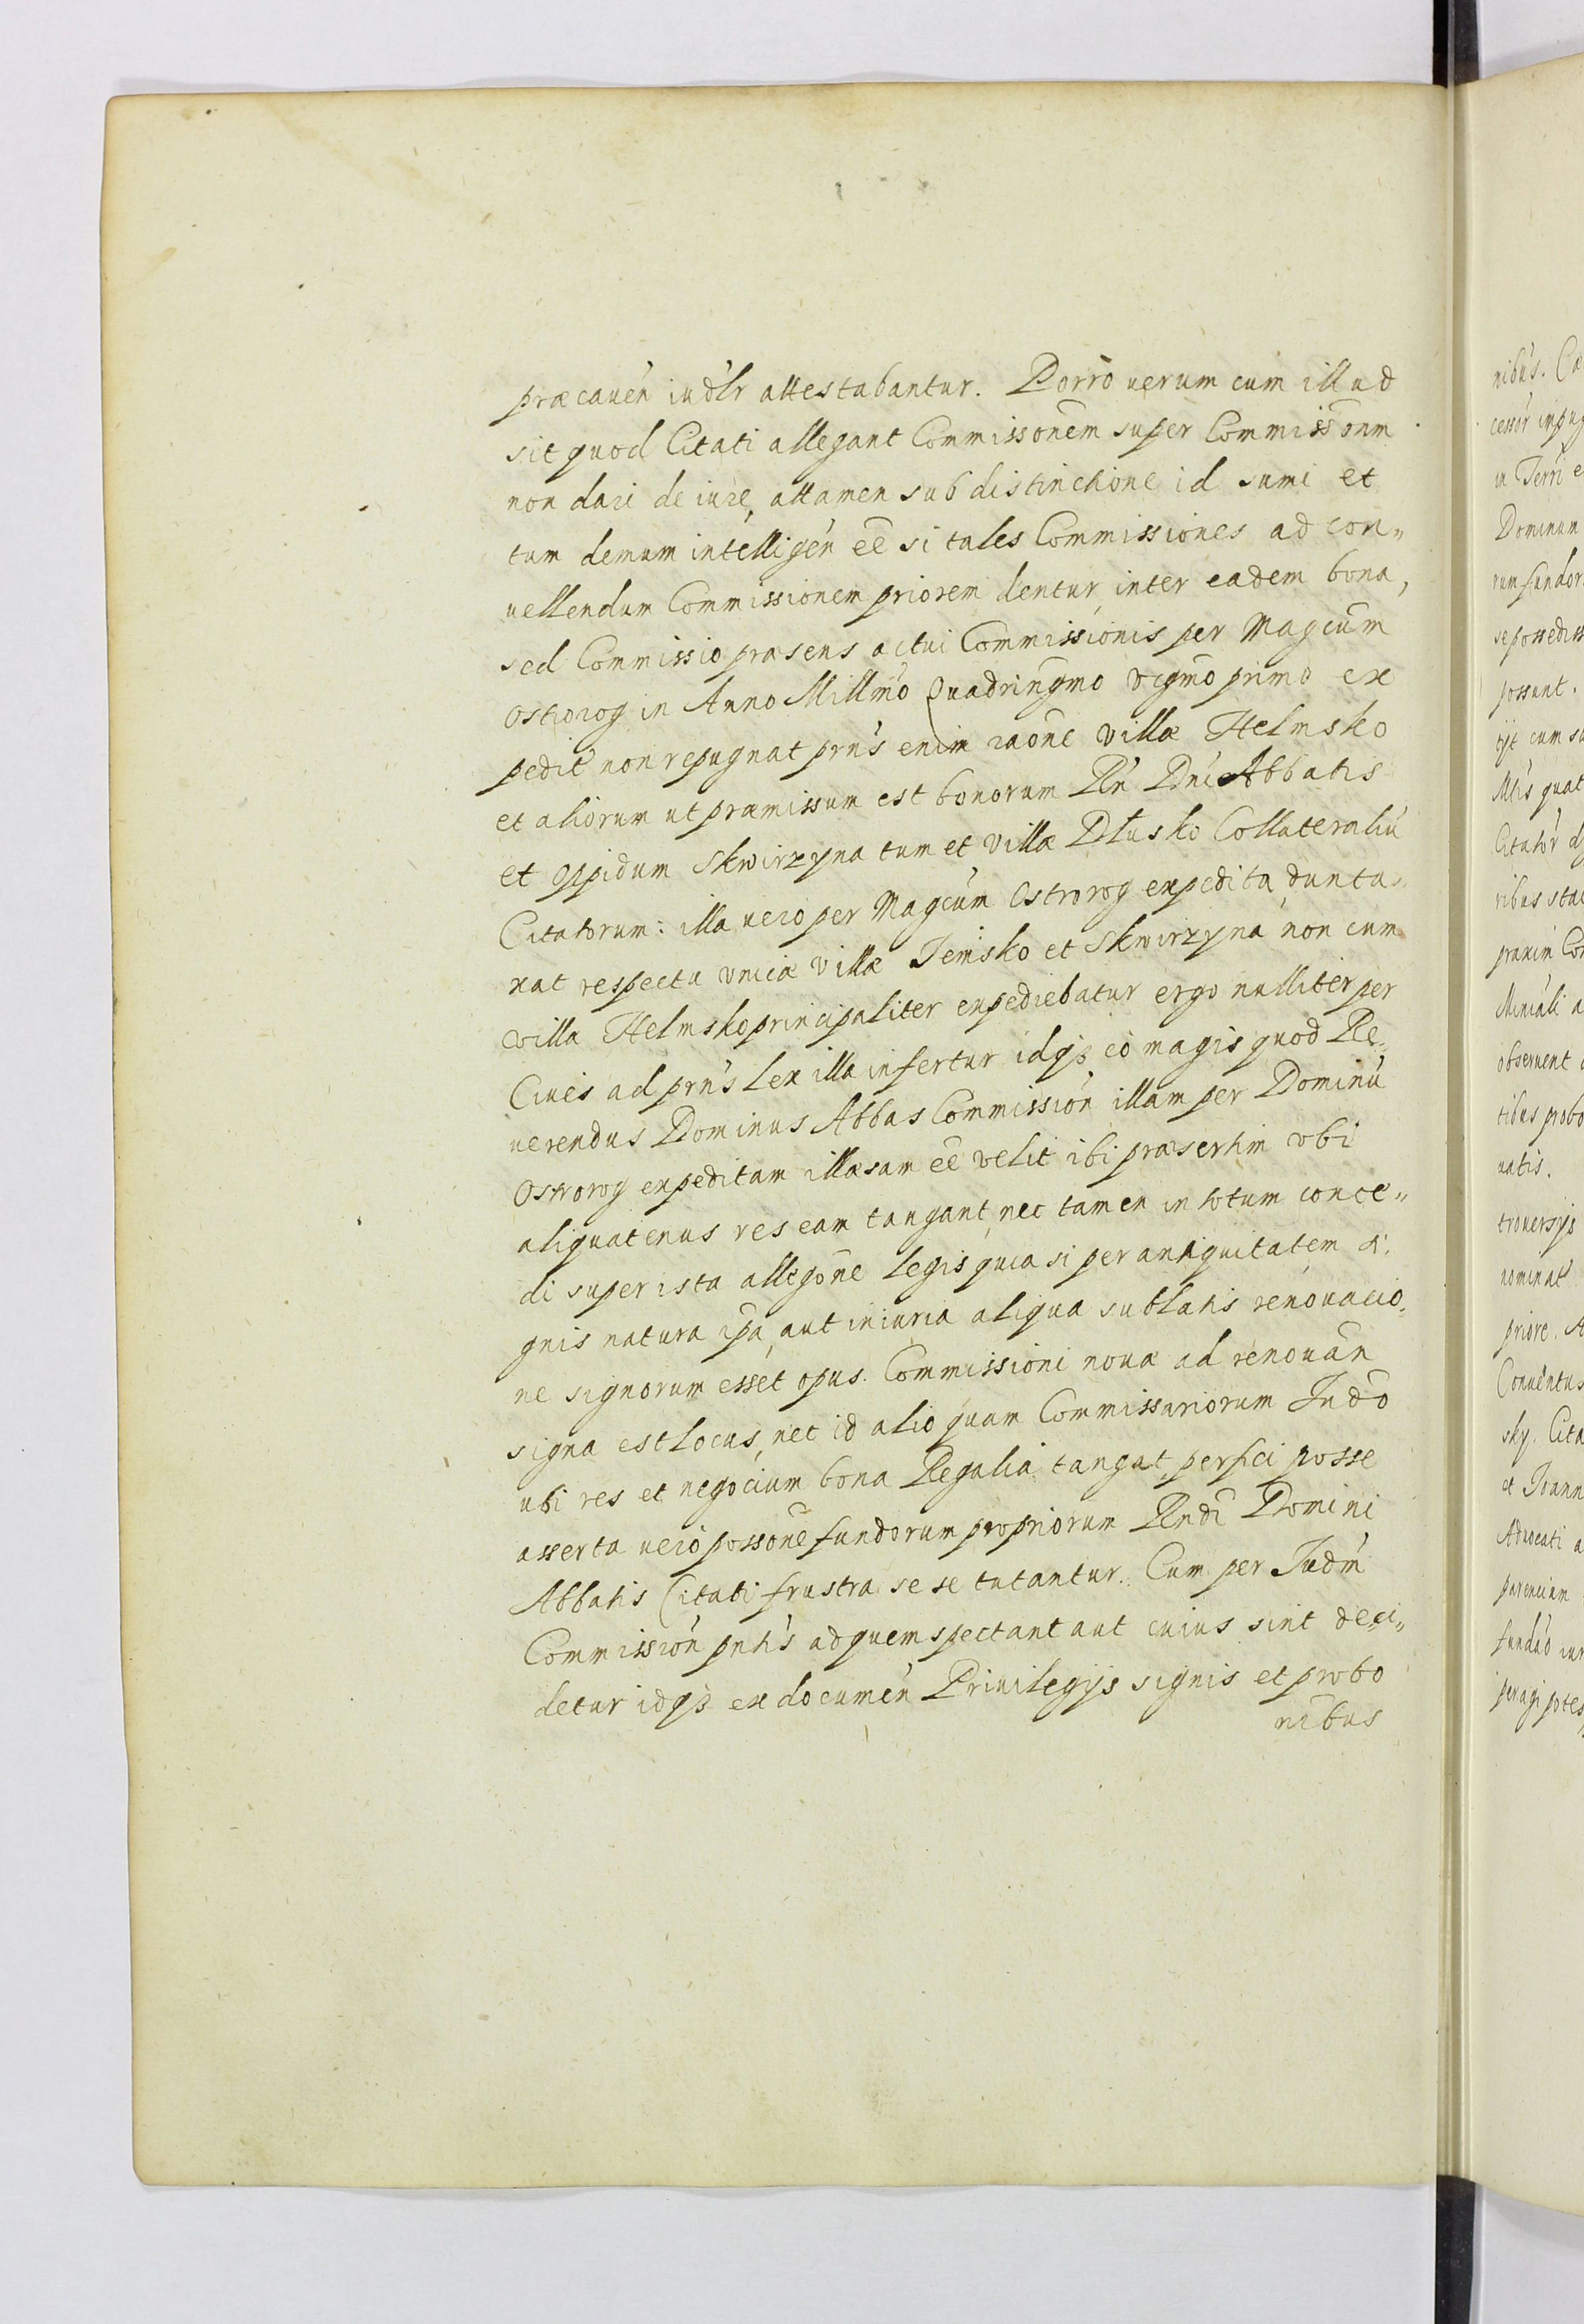 præcauen iudlr attestabantur. Porro uerum cum illud
sit quod Citati allegant Commissonem super Commissonm
non dari de iure, attamen sub distinctione id sumi et
tum demum intelligen ee si tales Commissiones ad con„
uellendum Commissionem priorem dentur, inter eadem bona,
sed Commissio præsens actui Commissionis per Magcum
Ostrorog in Anno Millmo Quadringmo vcgmo primo ex
pedit non repugnat prns enim raone villæ Helmsko
et aliorum ut præmissum est bonorum Rn Dni Abbatis
et oppidum Skwirzyna tum et villæ Dłusko Collateraliu
Citatorum: illa uero per Magcum Ostrorog expedita, dunta„
xat respectu vnicæ villæ Jemsko et Skwirzyna non cum
villa Helmsko principaliter expediebatur ergo nulliter per
Ciues ad prns Lex illa infertur idqz eo magis quod Re„
uerendus Dominus Abbas Commission illam per Dominu
Ostrorog expeditam illæsam ee velit ibi præsertim vbi
aliquatenus res eam tangant, nec tamen in totum conce„
di super ista allegone legis quia si per antiquitatem si„
gnis natura ipa, aut iniuria aliqua sublatis renouacio„
ne signorum esset opus. Commissioni nouæ ad renouan
signa est locus, nec id alio quam Commissariorum Judo
ubi res et negocium bona Regalia tangat perfici posse
asserta uero possone fundorum propriorum Rndi Domini
Abbatis Citati frustra sese tutantur. Cum per Judm
Commission pntis ad quem spectant aut cuius sint deci„
detur idqz ex documen Priuilegijs signis et probo
nibus
nibus. Ca
Dominum
possunt.
ribus
obseruent
tibus probo
uatis.
nominat
priore. A
Conuentus
sky. Cita
et Joann
Aduocati a